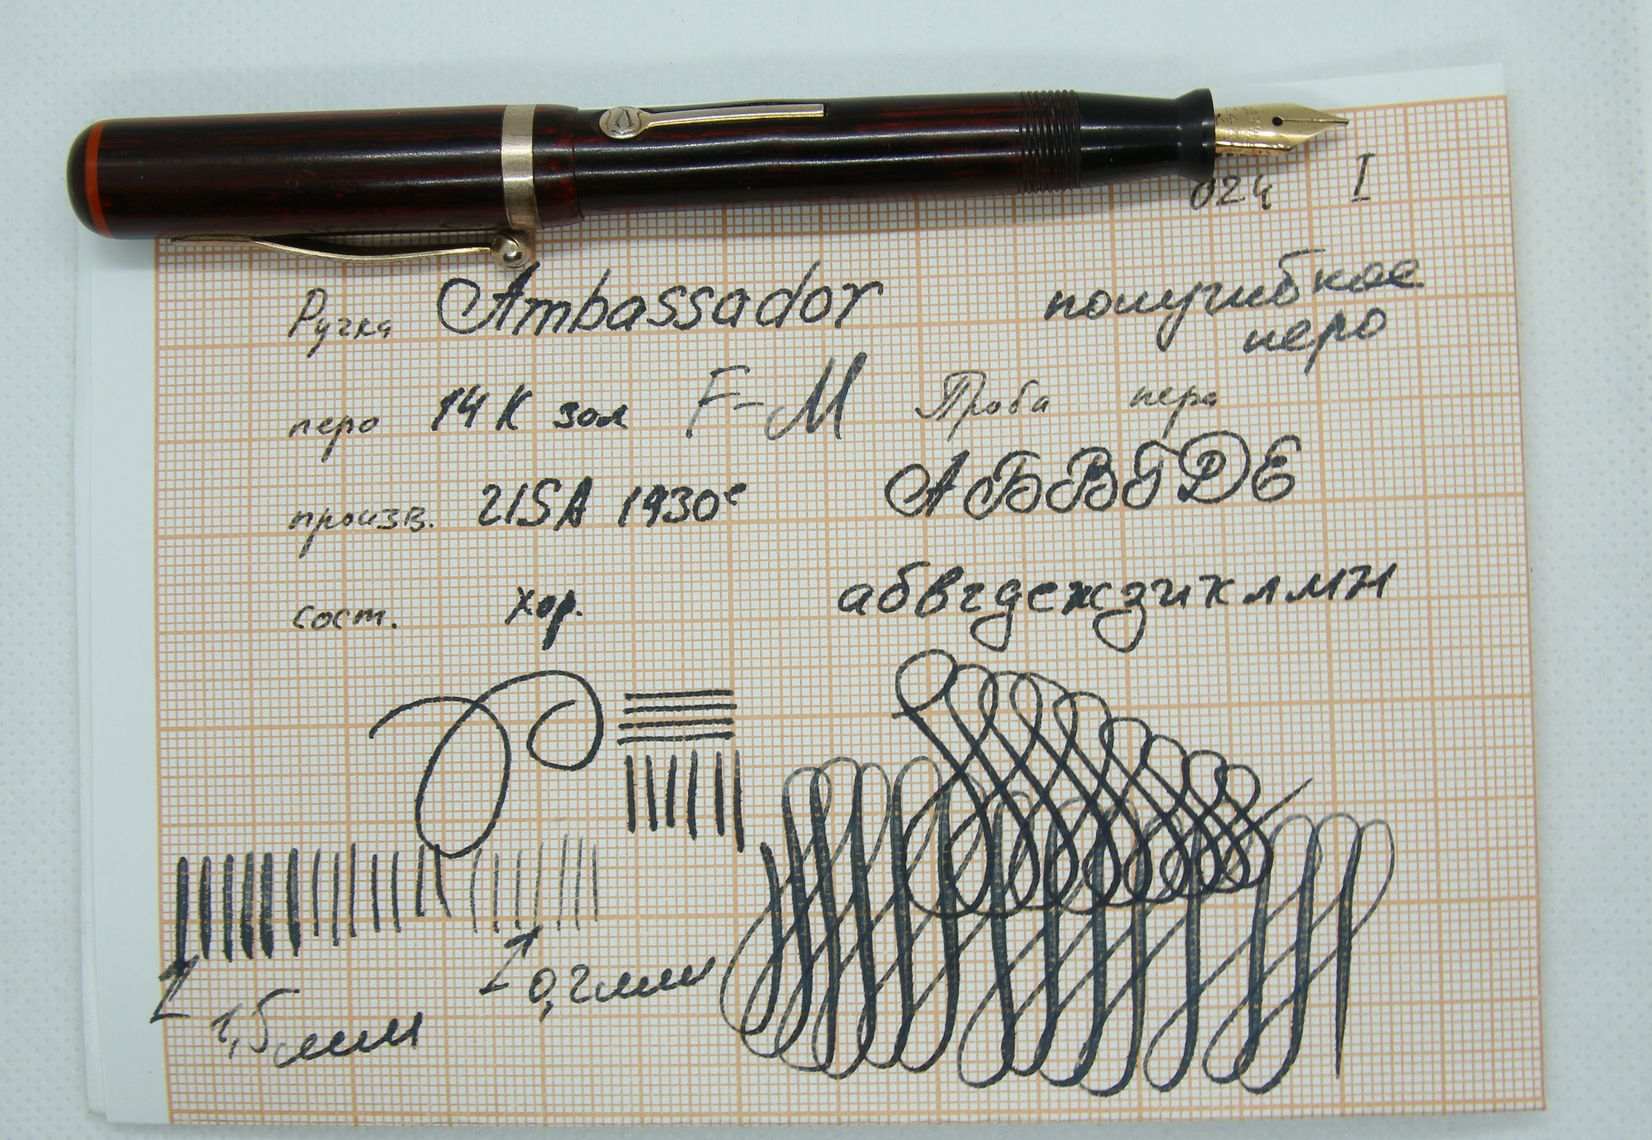 024 I
Ручка Ambassador
полугибкое
перо
перо 14К зол F-М Проба пера
произв. USA 1930е
АБВГДЕ
сост. хор.
абвгдежзиклмн
0,2мм
1,5мм